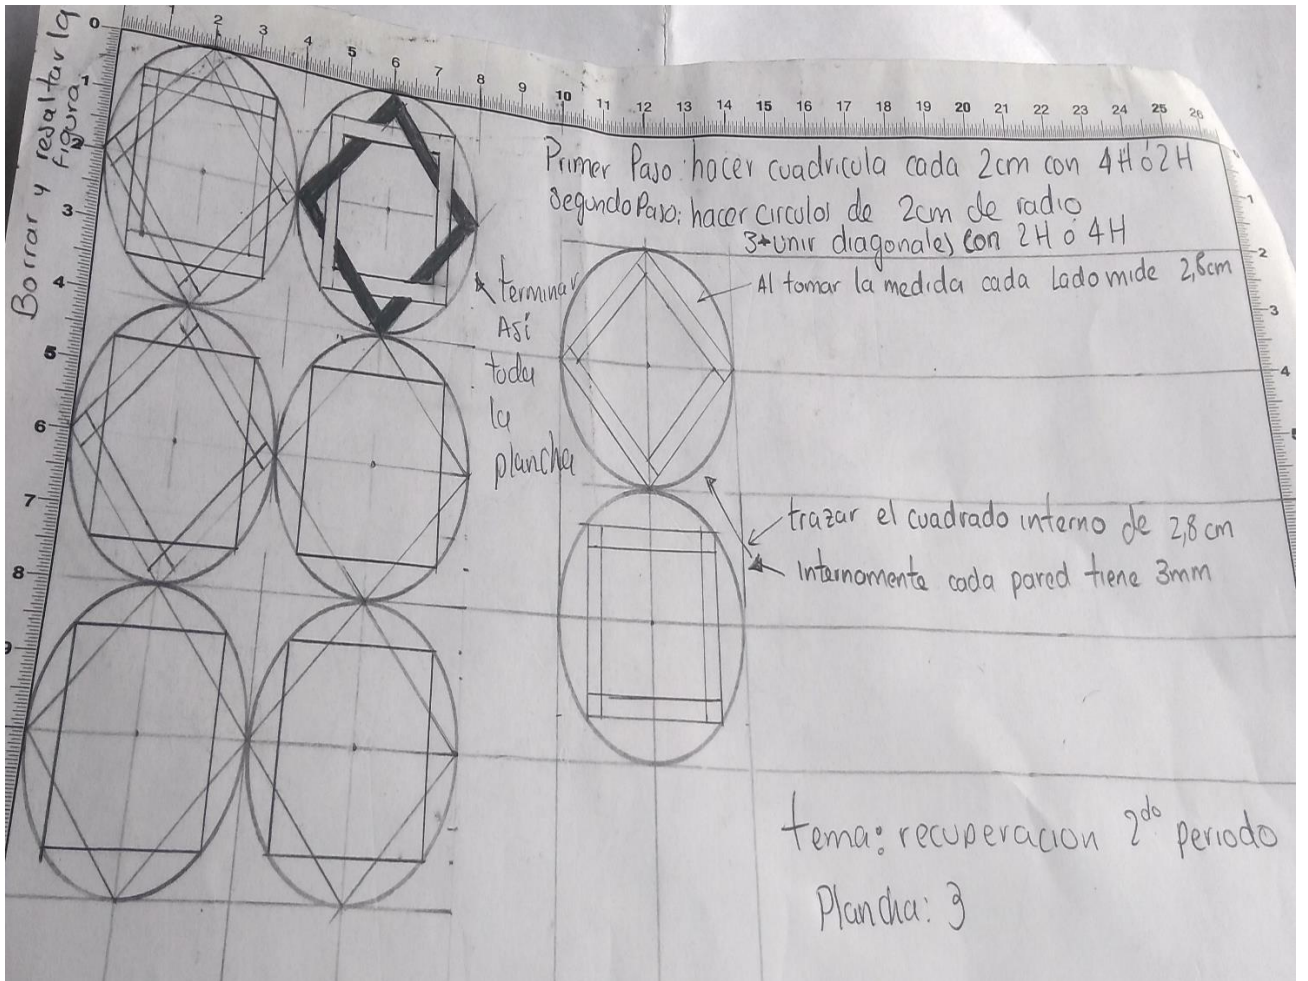 Borrar y resaltar la
figura
0 1 2 3 4 5 6 7 8 9 10 11 12 13 14 15 16 17 18 19 20 21 22 23 24 25 26
1
2
3
4
5
6
7
8
9
1
2
3
4
5
Primer Paso: hacer cuadricula cada 2cm con 4H ó 2H
Segundo Paso: hacer circulos de 2cm de radio
3 unir diagonales con 2H ó 4H
Al tomar la medida cada Lado mide 2,8cm
terminar
Así
toda
la
plancha
trazar el cuadrado interno de 2,8 cm
Internamente cada pared tiene 3mm
tema: recuperacion 2do periodo
Plancha: 3